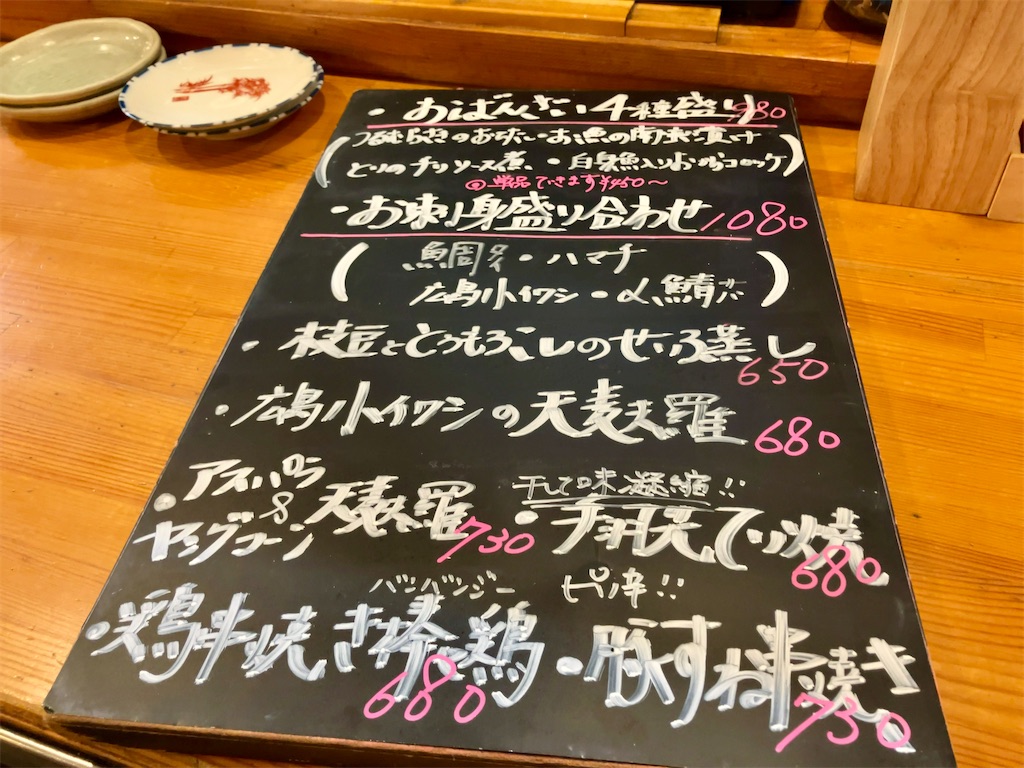 ・おばんざい4種盛り 980
(つるむらさきのお浸し・お魚の南蛮漬け
とりのチリソース煮・白身魚入りおからコロッケ)
◎単品できます¥450～
・お刺身盛り合わせ 1080
(鯛タイ・ハマチ
広島小イワシ・〆鯖サバ)
・枝豆ととうもろこしのせいろ蒸し 650
・広島小イワシの天麩羅 680
・アスパラ&ヤングコーン天麩羅 730
干して味凝縮!!
てり焼 680
バンバンジー
鶏串焼き棒々鶏 680
ピリ辛!!
・豚すね串焼き 730